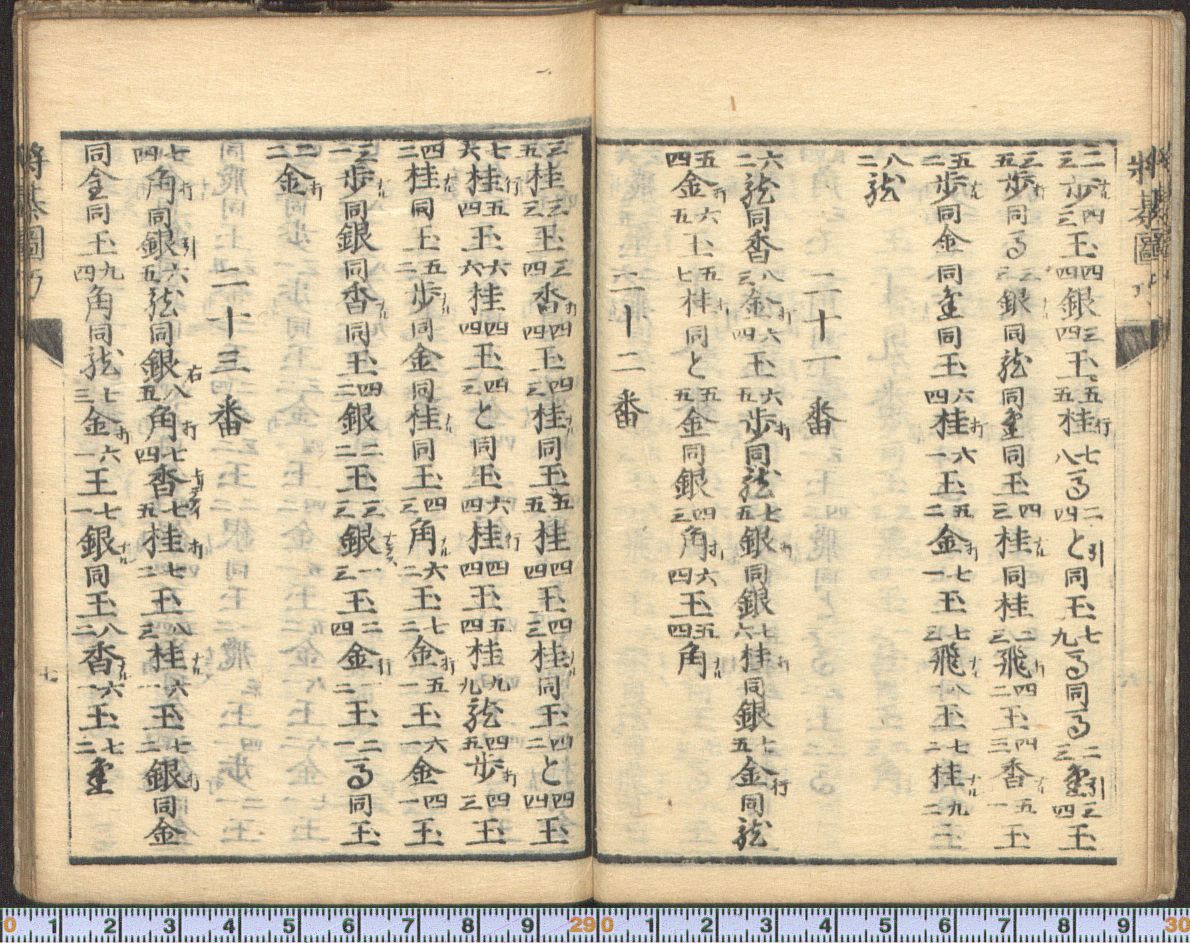 将棊圖巧
二三歩四三玉四四銀三四玉五五桂七八馬二四と同玉七九馬同馬二三三四玉
三五歩同馬三三銀同龍同同玉四三桂同桂二三飛四二玉四三香五一玉
五二歩同金同同玉六四桂六一玉五二金七一玉七三飛八一玉七二桂九二玉
八二龍
二十一番
六二龍同香八三金六四玉六五歩同龍七五銀同銀七六桂同銀七五金同龍
五四金六五玉五七桂同と五五金同銀四三角六四玉五四角
二十二番
三五桂三三玉三四香四四玉四三桂同玉五五桂四四玉四三桂同玉四二と四四玉
七六桂五四玉六六桂四四玉四三と同玉六四桂四四玉五四桂九九龍四五歩四三玉
四二桂同玉五二歩同金同桂同玉四三角六二玉七二金五一玉六一金四一玉
三一歩同銀同香同玉四二銀二二玉三三銀一三玉二四金一二玉二一馬同玉
二二金
二十三番
七四角同銀六五龍同銀八五角七四香七五桂七二玉八三桂六一玉七二銀同金
同金同玉九四角同龍七三金六一玉七一銀同玉八二香六一玉七二
将棊圖巧
七
0 1 2 3 4 5 6 7 8 9 29 0 1 2 3 4 5 6 7 8 9 30